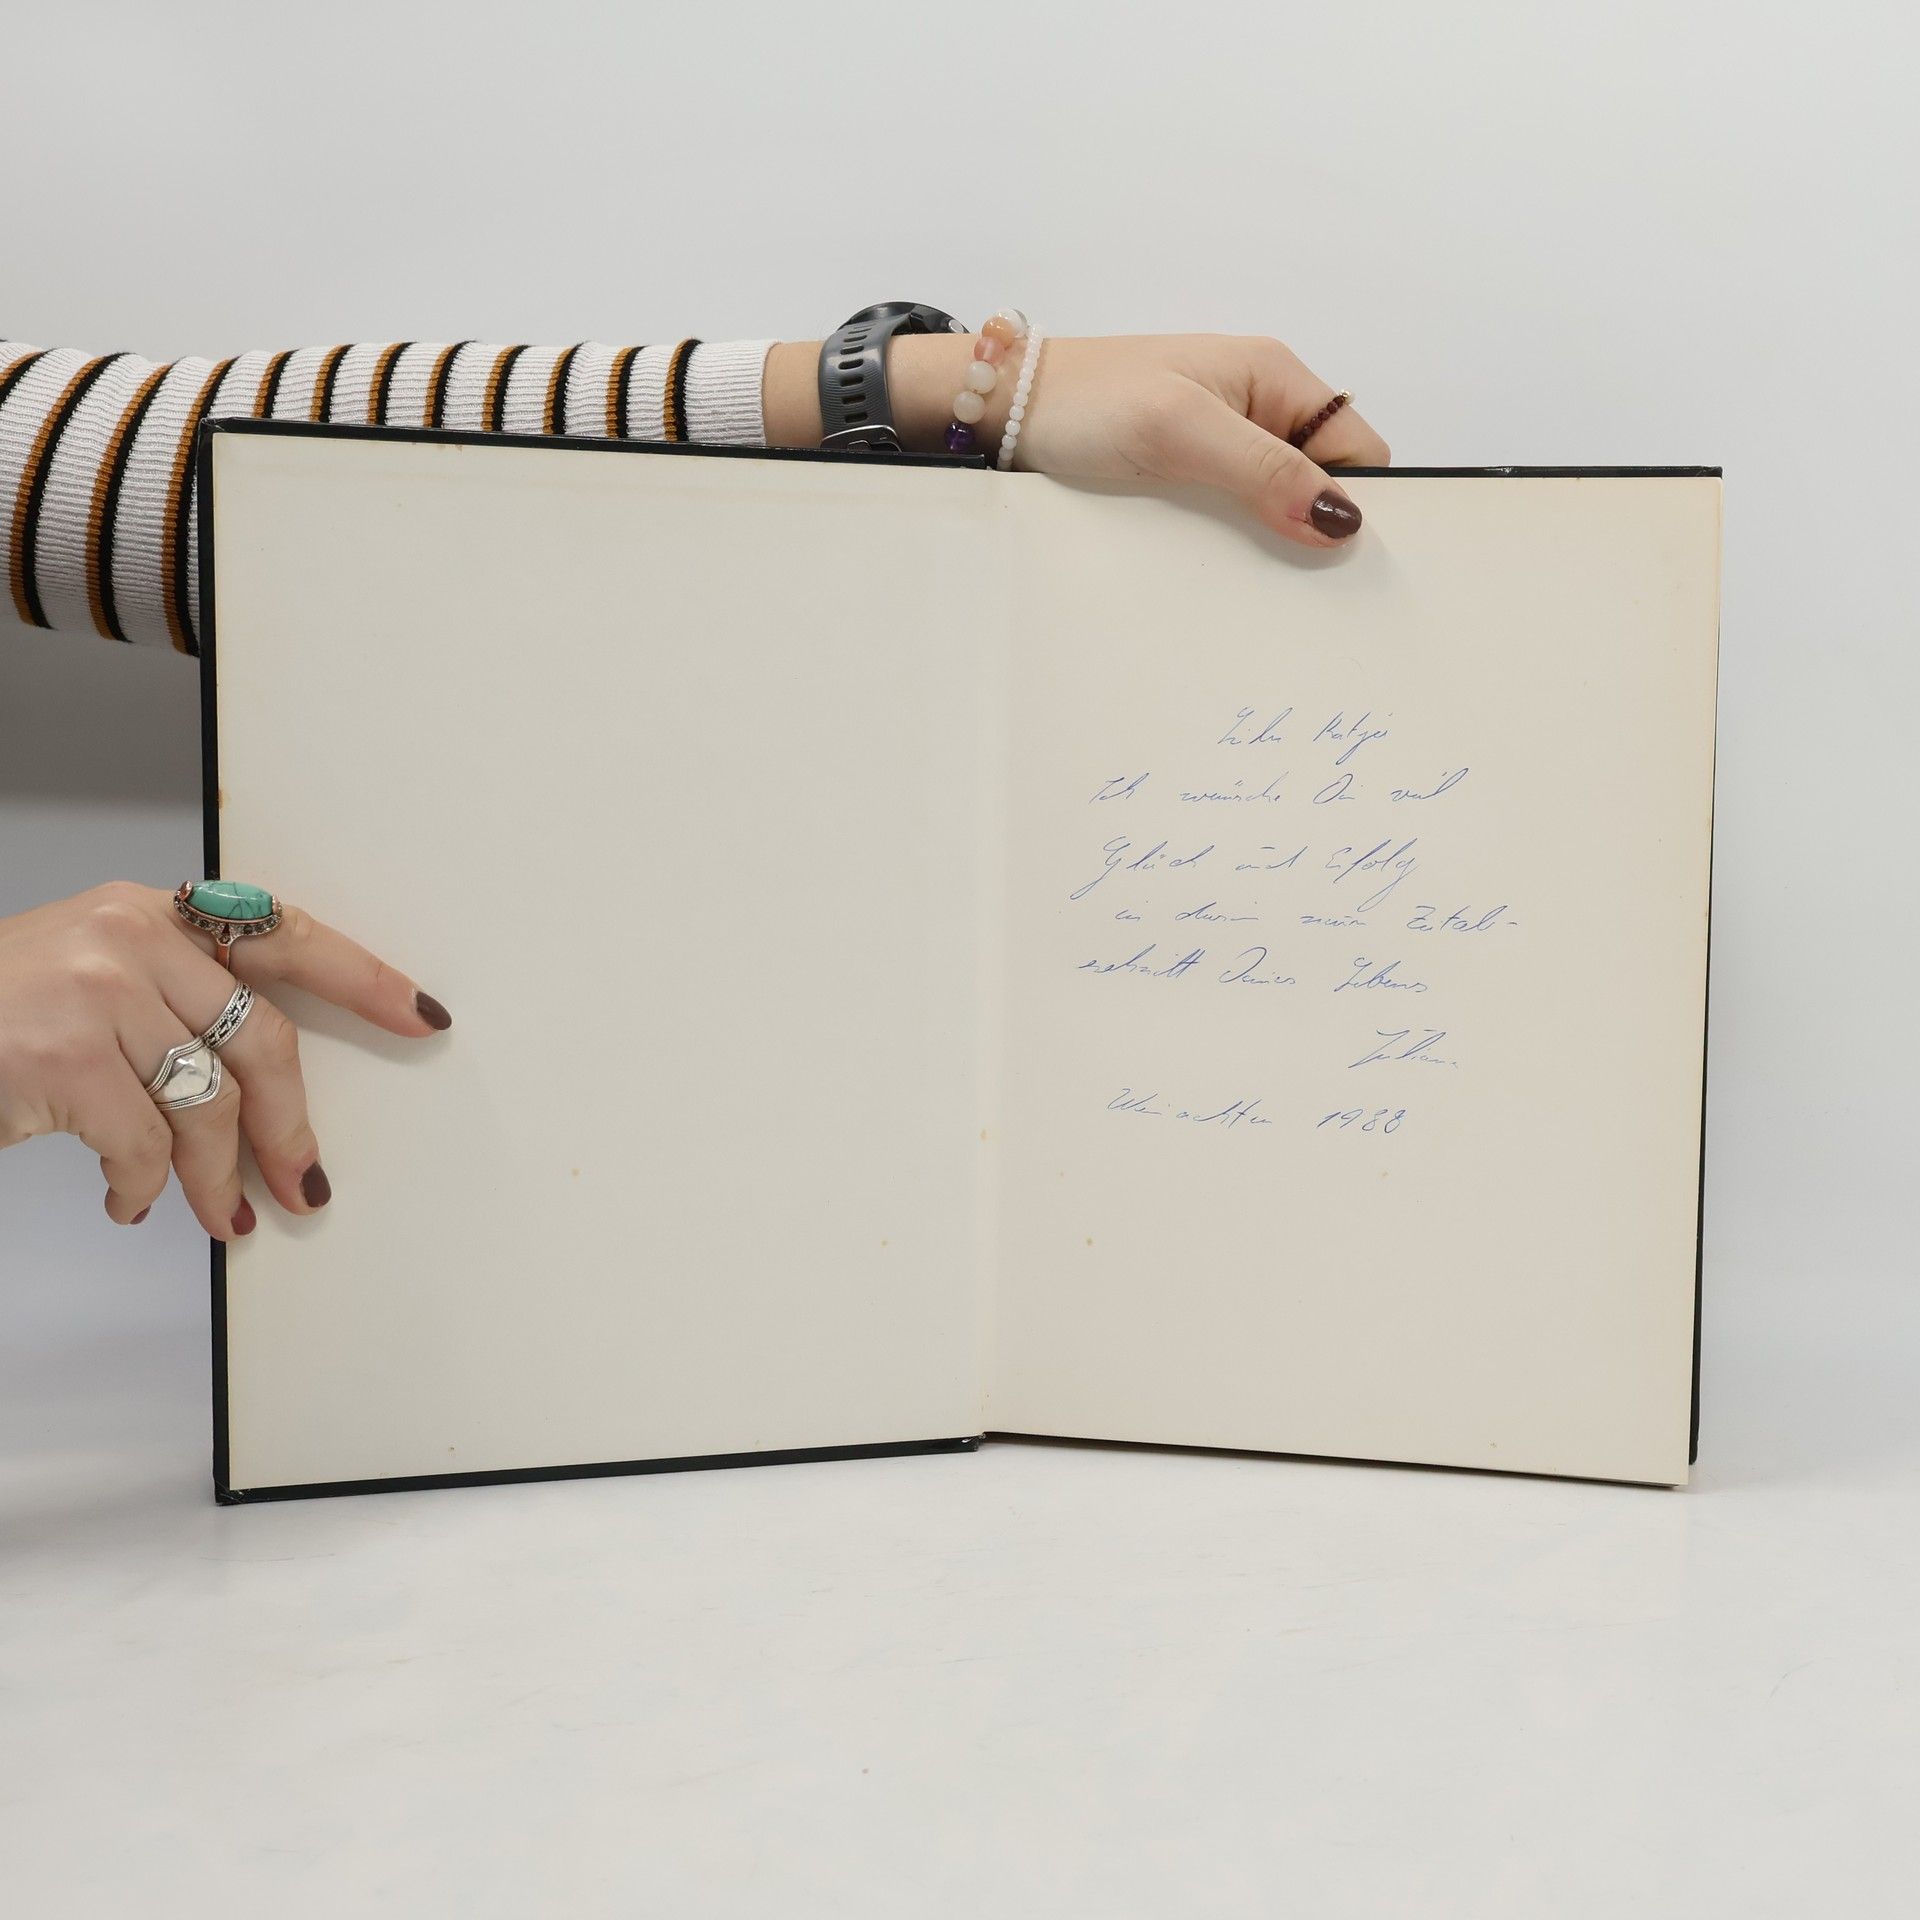 Liebe Katja
Ich wünsche Dir viel
Glück und Erfolg
in diesem neuen Zeitab-
schnitt Deines Lebens
Juliane
Weinachten 1988